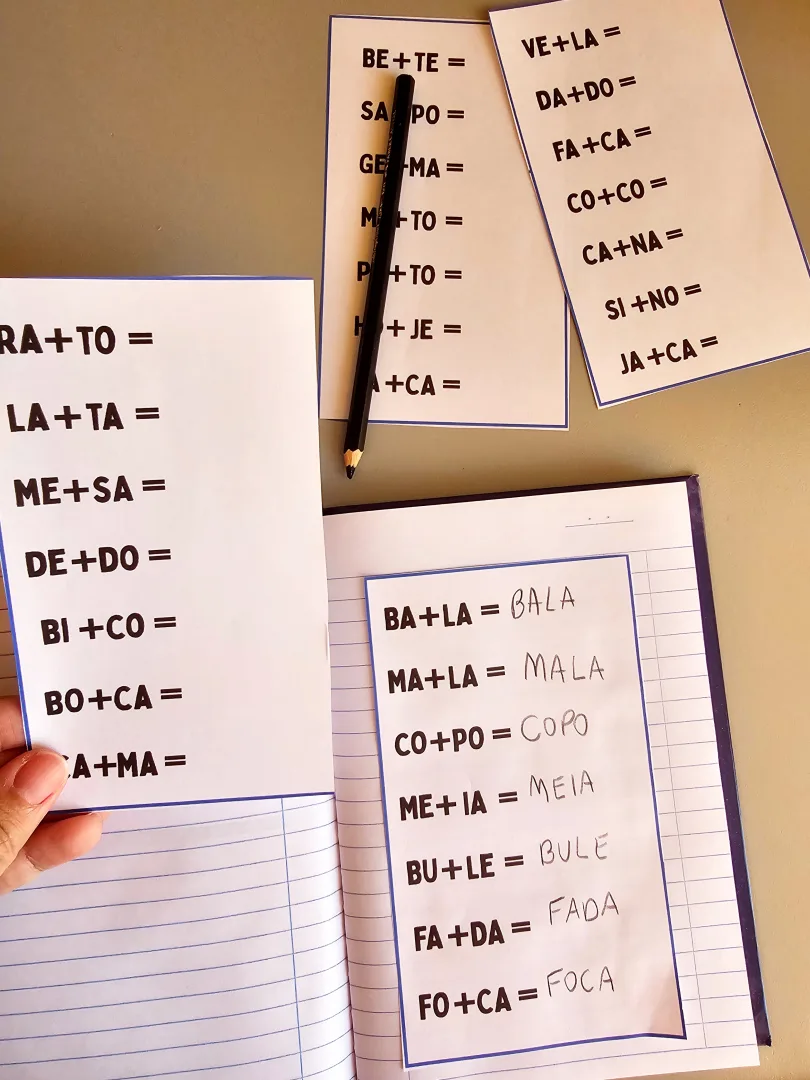 BE+TE =
SA PO =
GE+MA =
M +TO =
P +TO =
H +JE =
+CA =
VE+LA =
DA+DO =
FA+CA =
CO+CO =
CA+NA =
SI+NO =
JA+CA =
RA+TO =
LA+TA =
ME+SA =
DE+DO =
BI+CO =
BO+CA =
CA+MA =
BA+LA = BALA
MA+LA = MALA
CO+PO = COPO
ME+IA = MEIA
BU+LE = BULE
FA+DA = FADA
FO+CA = FOCA